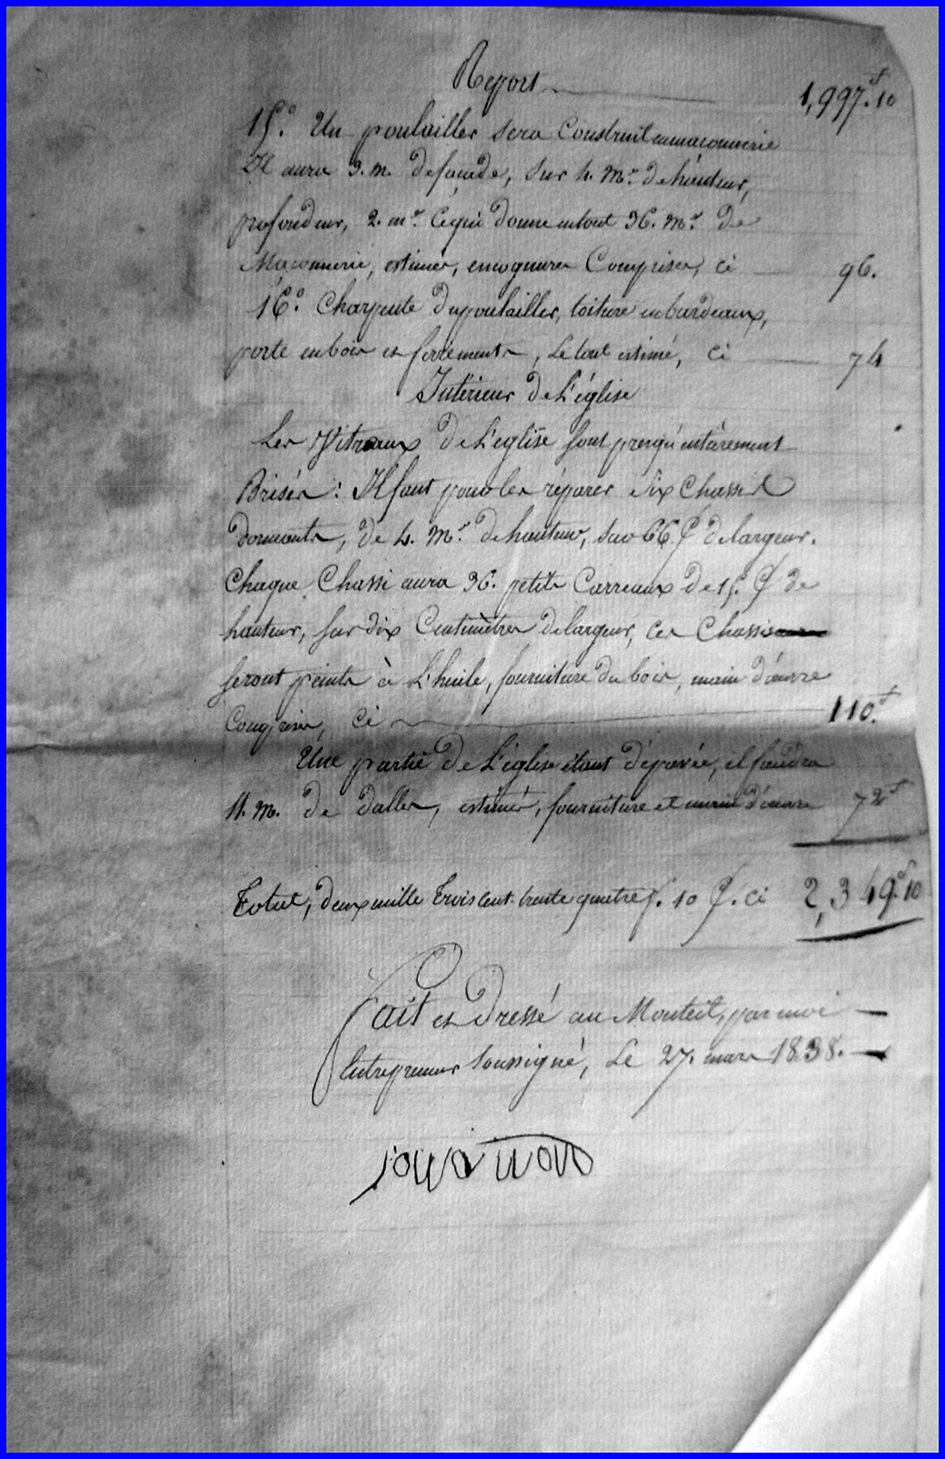 Report 1,997.f 10
15.° Un poulailler sera Construit en maconnerie
Il aura 3. m. de facade, sur 4. m.s de hauteur,
profondeur, 2. m.s Ce qui donne en tout 36. m.s de
Maconnerie, estimés, encognures Comprises, ci 96.
16.° Charpente du poulailler, toiture en bardeaux,
porte en bois et ferrements, le tout estimé, ci 74
Intérieur de L'église
Les Vitraux de L'eglise sont presqu'entièrement
Brisés: Il faut pour les réparer Six Chassis
dormants, de 4. m.s de hauteur, sur 66 C de largeur.
Chaque Chassi aura 36. petits Carreaux de 15. C de
hauteur, sur dix Centimètres de largeur, ces Chassis
seront peints à L'huile, fourniture du bois, main d'œuvre
Comprise, ci 110.f
Une partie de L'église étant dépavée, il faudra
11. m. de dalles, estimés, fourniture et main d'œuvre 72f
Total, deux mille trois cent trente quatre f. 10 C. ci 2,349.f 10
Fait et Dressé au Monteil, par moi
Entrepreneur soussigné, Le 27. mars 1838.